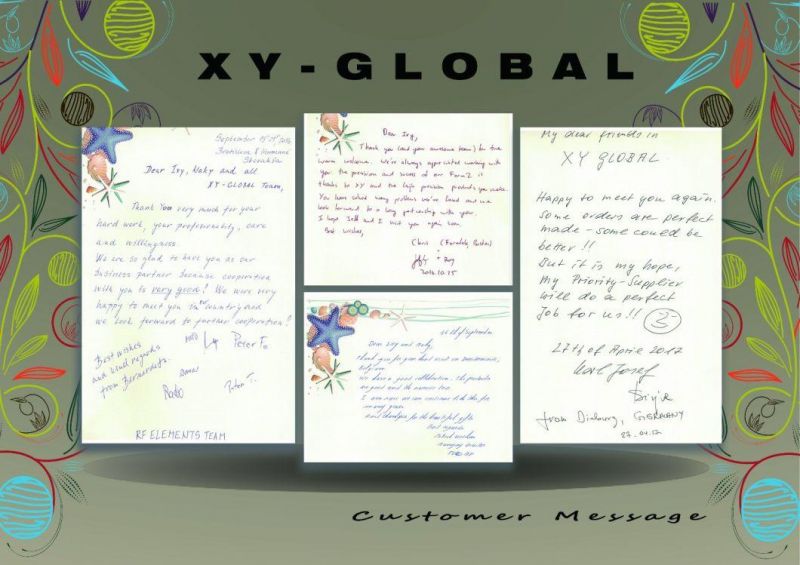 XY-GLOBAL
September 2016
Bratislava & Humenné
Slovakia
Dear Ivy, and all
XY-GLOBAL Team,
Thank You very much for your
hard work, your professionality, care
and willingness.
We are so glad to have you as our
business partner because cooperation
with you is very good! We were very
happy to meet you in country and
we look forward to further cooperation!
Best wishes
and kind regards
from
Peter
RF ELEMENTS TEAM
Dear Ivy,
Thank you (and your awesome team) for the
warm welcome. We've always appreciated working with
you. The precision and success of our Form2 is
thanks to XY and the high precision products you make.
You have solved many problems we've faced and we
look forward to a long partnership with you
I hope Jeff and I visit you again soon.
Best wishes,
Chris
2016.10.25
of September
Dear Ivy and
Thank you for your
We have a good collaboration, the products
are good and the service too.
I am sure we can continue like this for
many years
and thank you for the beautiful gifts
Best regards
My dear friends in
XY GLOBAL.
Happy to meet you again.
Some orders are perfect
made - some could be
better!!
But it is my hope,
my Priority-Supplier
will do a perfect
Job for us!!
27th of April 2017
Karl Josef
from Duisburg, GERMANY
27.04.17
Customer Message